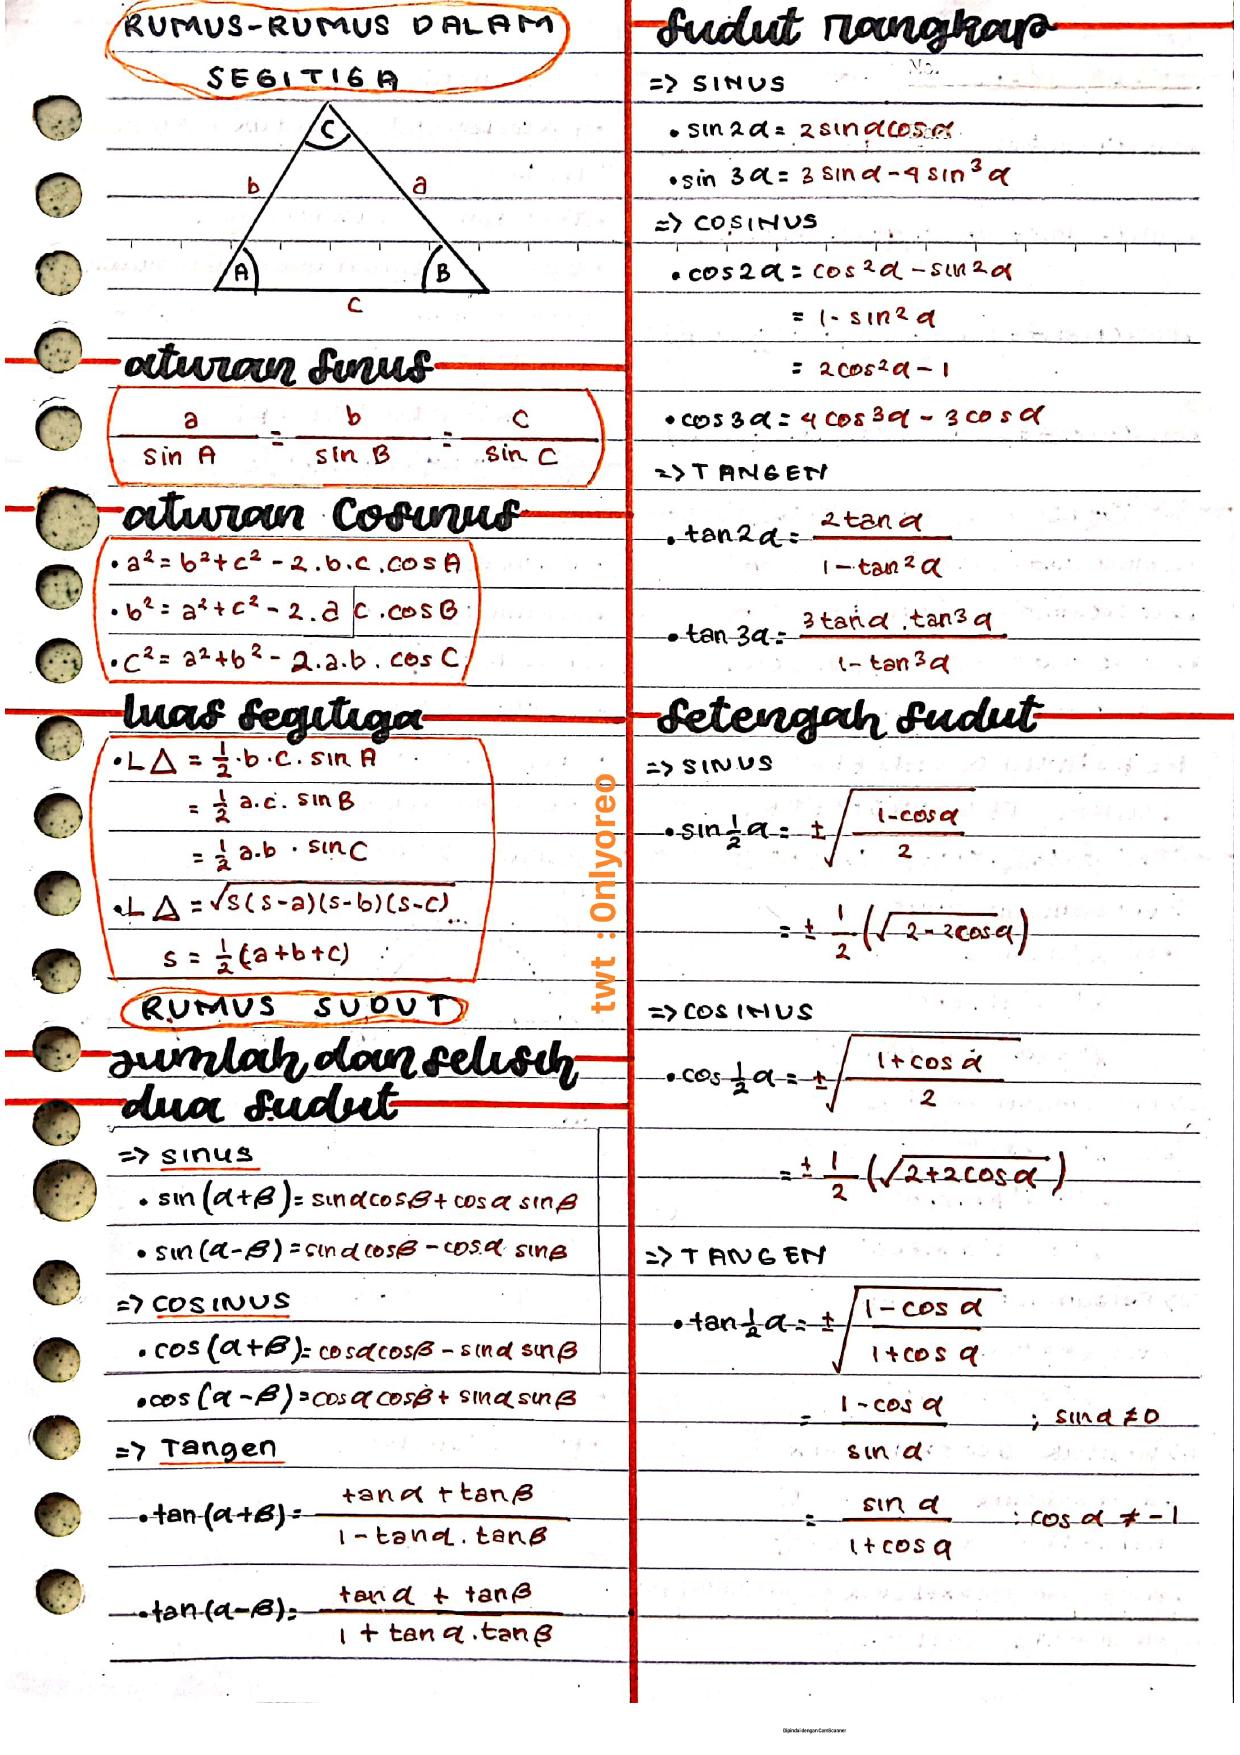 RUMUS-RUMUS DALAM
SEGITIGA
C
b
a
A
B
c
aturan sinus
a/sin A = b/sin B = c/sin C
aturan cosinus
• a² = b² + c² - 2.b.c.cos A
• b² = a² + c² - 2.a c.cos B
• c² = a² + b² - 2.a.b.cos C
luas segitiga
• L △ = 1/2 . b . c . sin A
= 1/2 a.c. sin B
= 1/2 a.b . sin C
• L △ = √s(s-a)(s-b)(s-c)
s = 1/2 (a+b+c)
RUMUS SUDUT
Jumlah dan selisih
dua sudut
=> sinus
• sin (α+β) = sin α cos β + cos α sin β
• sin (α-β) = sin α cos β - cos α sin β
=> COSINUS
• cos (α+β) = cos α cos β - sin α sin β
• cos (α-β) = cos α cos β + sin α sin β
=> Tangen
• tan (α+β) = tan α + tan β / 1 - tan α . tan β
• tan (α-β) = tan α + tan β / 1 + tan α . tan β
twt : Onlyoreo
Sudut Rangkap
No.
=> SINUS
• sin 2α = 2 sin α cos α
• sin 3α = 3 sin α - 4 sin³ α
=> COSINUS
• cos 2α = cos²α - sin²α
= 1 - sin² α
= 2 cos²α - 1
• cos 3α = 4 cos³α - 3 cos α
=> TANGEN
• tan 2α = 2 tan α / 1 - tan² α
• tan 3α = 3 tan α . tan³ α / 1 - tan³ α
Setengah sudut
=> SINUS
• sin 1/2 α = ± √ 1-cos α / 2
= ± 1/2 (√2 - 2cos α)
=> COSINUS
• cos 1/2 α = ± √ 1+cos α / 2
= ± 1/2 (√2+2cos α)
=> TANGEN
• tan 1/2 α = ± √ 1 - cos α / 1+cos α
= 1 - cos α / sin α ; sin α ≠ 0
= sin α / 1+cos α : cos α ≠ -1
Dipindai dengan CamScanner